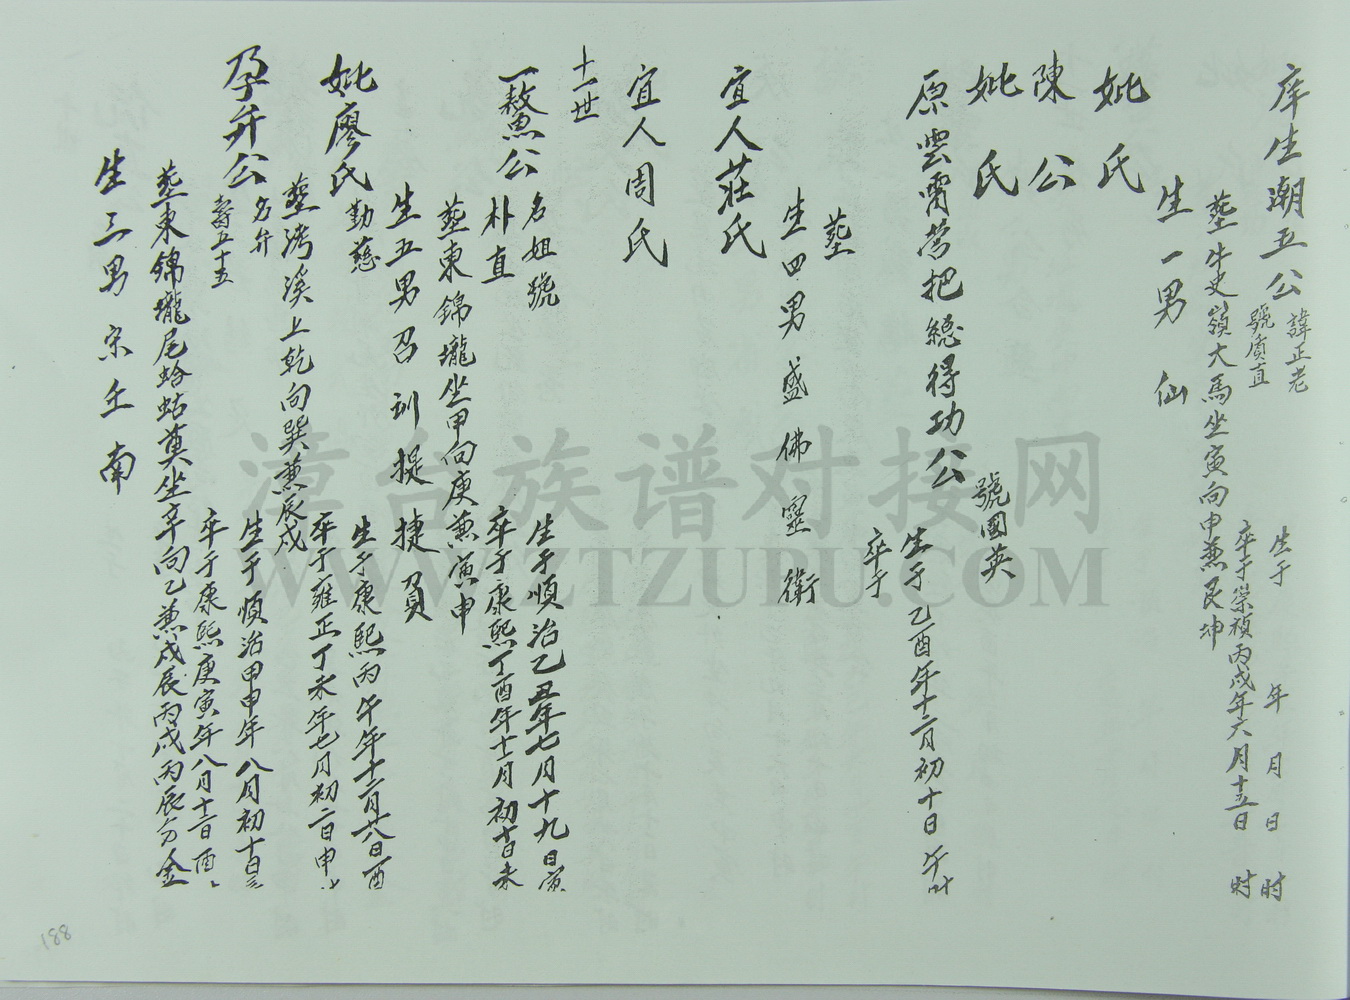 庠生潮五公
諱正老
號質直
生于 年 月 日 时
卒于崇禎丙戌年六月十五日 时
葬牛史嶺大馬坐寅向申兼艮坤
生一男 仙
妣 氏
陳公
妣 氏
原雲霄营把總得功公
號國英
生于乙酉年十二月初十日午时
卒于
葬
生四男盛佛靈衛
宜人莊氏
宜人周氏
十一世
一鰲公
名姐號
朴直
生于順治乙丑年七月十九日寅
卒于康熙丁酉年十一月初十日未
葬東錦壠坐甲向庚兼寅申
生五男召訓提捷員
妣廖氏
勤慈
生于康熙丙午年十二月廿八日酉
卒于雍正丁未年七月初二日申
葬湾溪上乾向巽兼辰戌
孕弁公
名弁
壽五十五
生于順治甲申年八月初十日
卒于康熙庚寅年八月十二日酉
葬東錦壠尾蛤蛄奠坐辛向乙兼戌辰丙戌丙辰分金
生三男宗壬南
188
漳台族谱对接网
WWW.ZTZUPU.COM